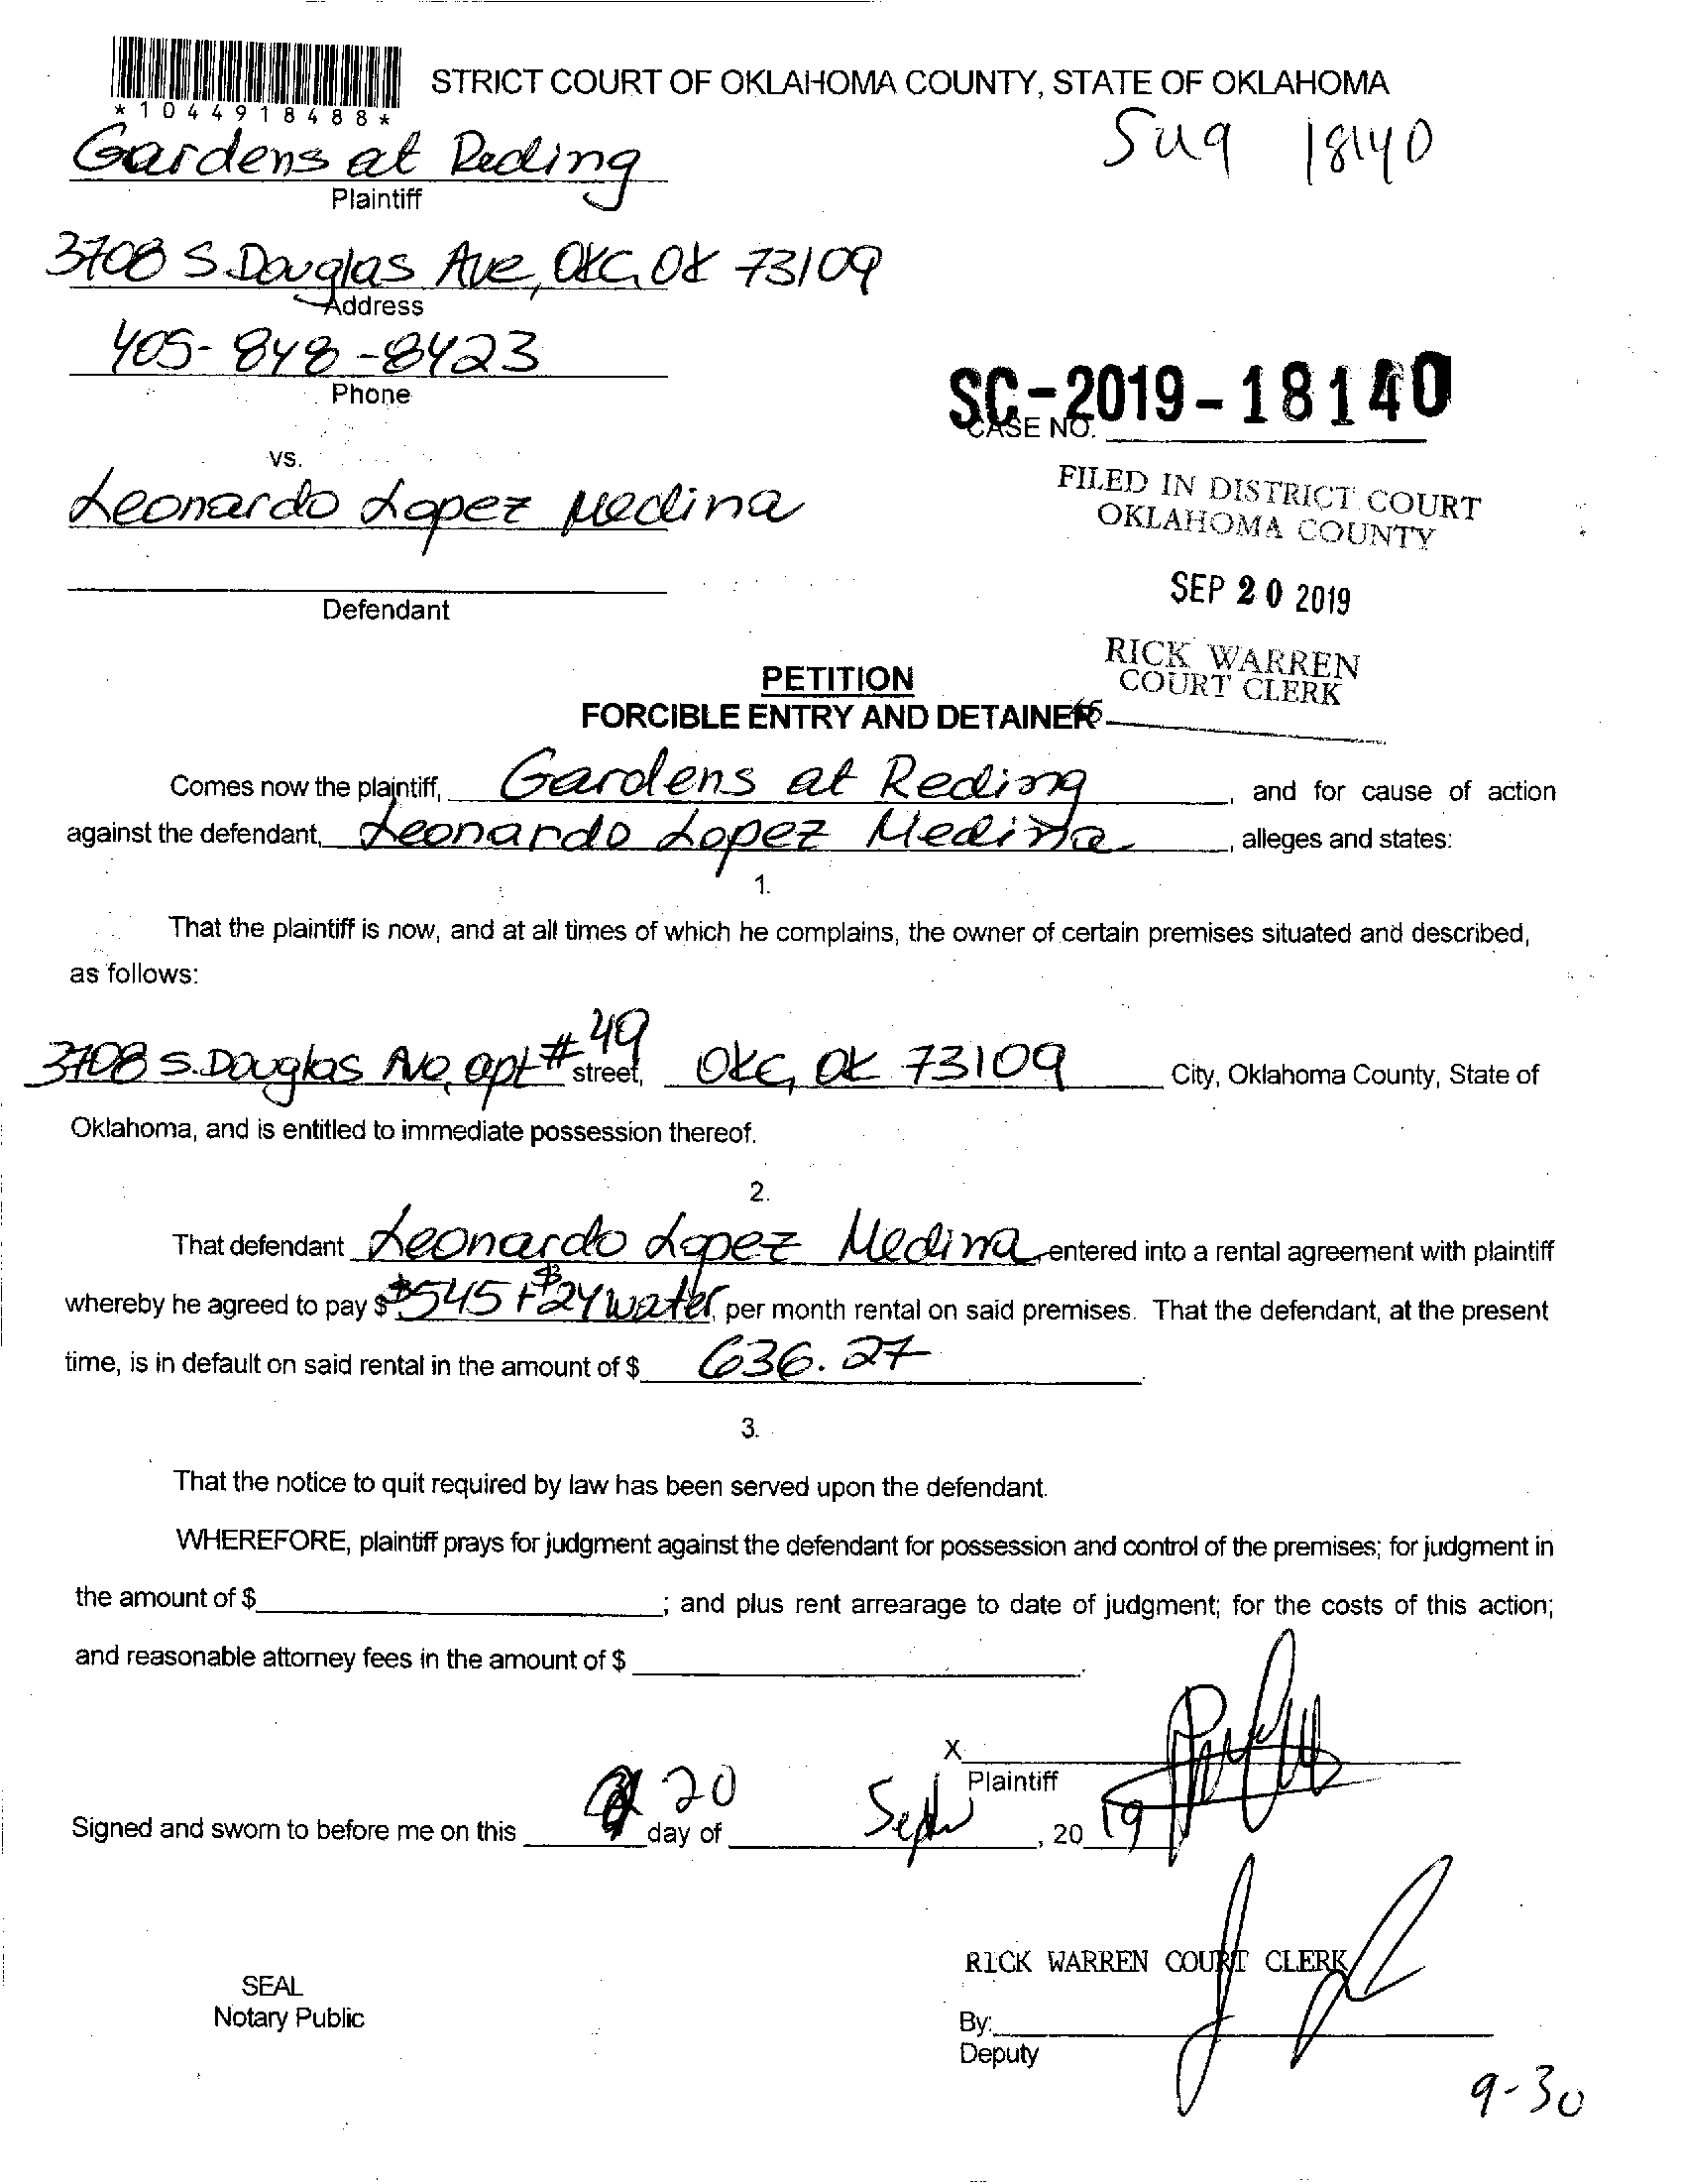 STRICT COURT OF OKLAHOMA COUNTY, STATE OF OKLAHOMA
*1044918488*
Gardens at Reding
Plaintiff
18140
3708 S. Douglas Ave, OKC, OK 73109
Address
405-848-8423
Phone
SC-2019-18140
CASE NO.
vs.
Leonardo Lopez Medina
Defendant
FILED IN DISTRICT COURT
OKLAHOMA COUNTY
SEP 20 2019
RICK WARREN
COURT CLERK
PETITION
FORCIBLE ENTRY AND DETAINER
Comes now the plaintiff, Gardens at Reding, and for cause of action
against the defendant, Leonardo Lopez Medina, alleges and states:
1.
That the plaintiff is now, and at all times of which he complains, the owner of certain premises situated and described,
as follows:
3708 S. Douglas Ave, apt #49 street, OKC, OK 73109 City, Oklahoma County, State of
Oklahoma, and is entitled to immediate possession thereof.
2.
That defendant Leonardo Lopez Medina entered into a rental agreement with plaintiff
whereby he agreed to pay $ $545 + $24 water, per month rental on said premises. That the defendant, at the present
time, is in default on said rental in the amount of $ 636.27
3.
That the notice to quit required by law has been served upon the defendant.
WHEREFORE, plaintiff prays for judgment against the defendant for possession and control of the premises; for judgment in
the amount of $ ; and plus rent arrearage to date of judgment; for the costs of this action;
and reasonable attorney fees in the amount of $ .
X
Plaintiff
Signed and sworn to before me on this 20 day of Sept, 2019
RICK WARREN COURT CLERK
SEAL
Notary Public
By:
Deputy
9-30